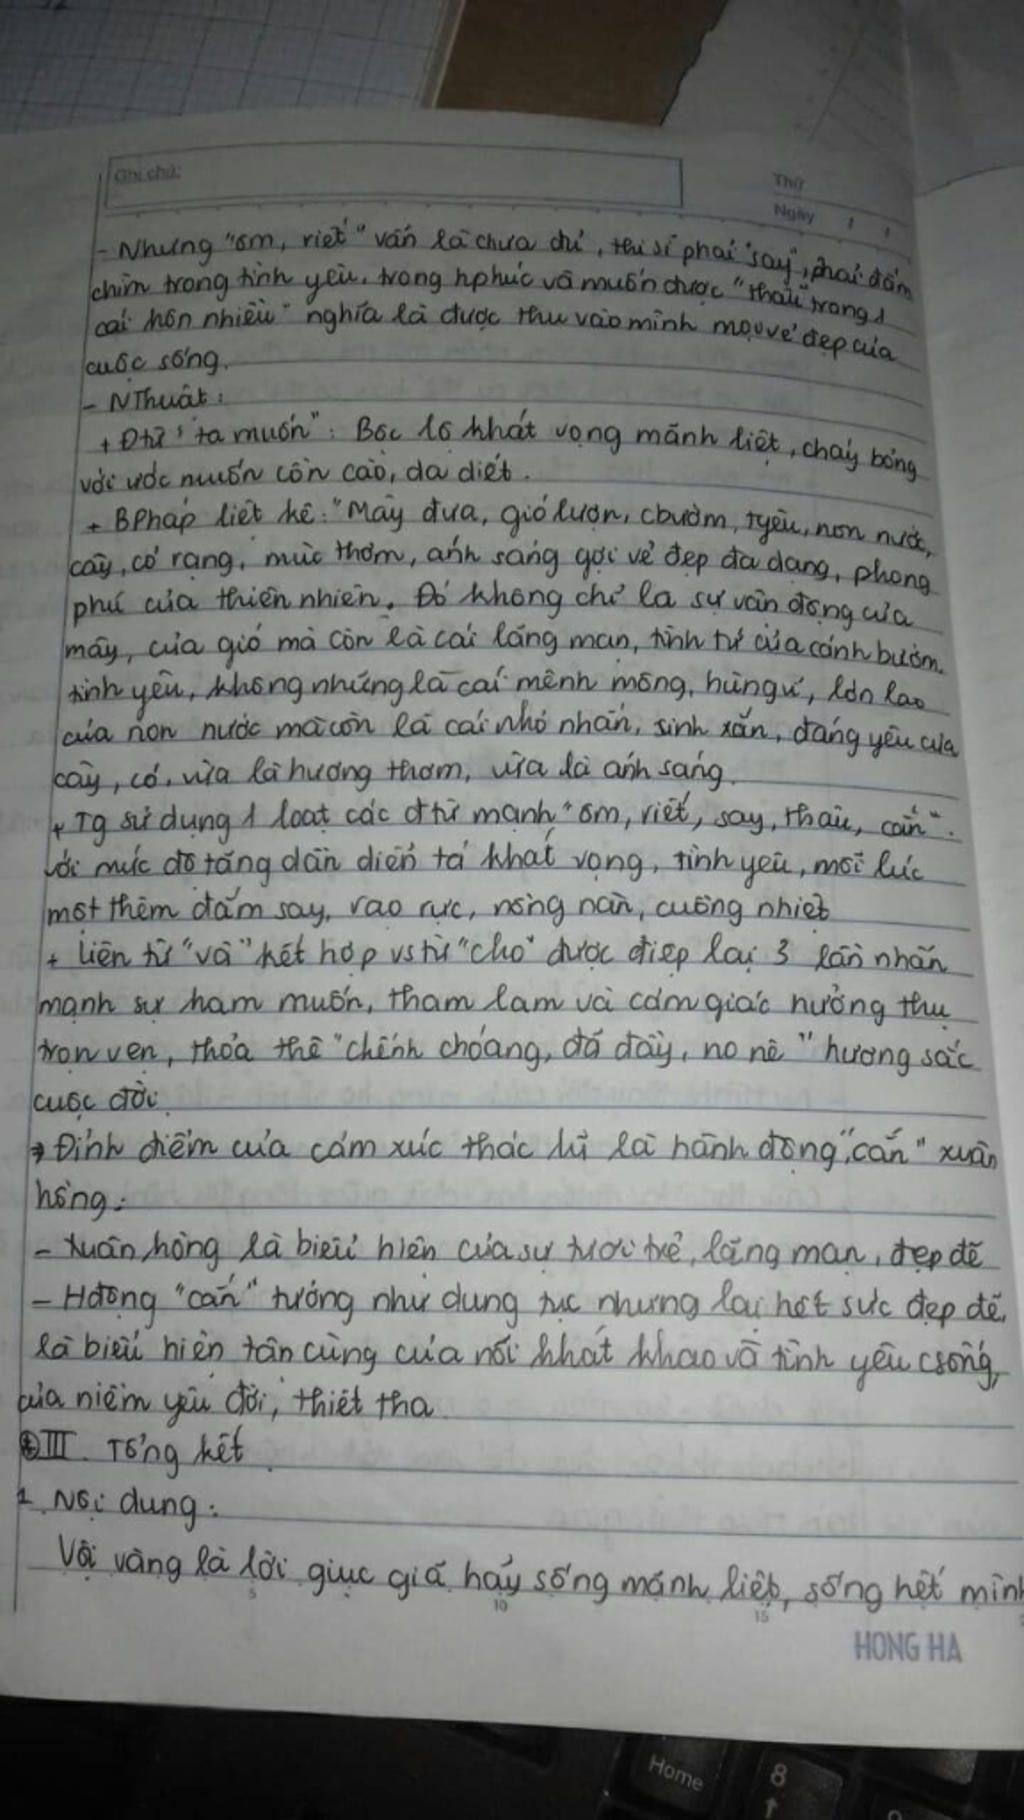 Ghi chú:
Thứ
Ngày / /
- Nhưng "ôm, riết" vẫn là chưa đủ, thi sĩ phải "say", phải đắm
chìm trong tình yêu, trong hphúc và muốn được "thâu trong 1
cái hôn nhiều" nghĩa là được thu vào mình mọi vẻ đẹp của
cuộc sống.
- NThuật:
+ Đtừ "ta muốn": Bộc lộ khát vọng mãnh liệt, cháy bỏng
với ước muốn cồn cào, da diết.
+ BPháp liệt kê: "Mây đưa, gió lượn, cbướm, tyêu, non nước,
cây, cỏ rạng, mùi thơm, ánh sáng gợi vẻ đẹp đa dạng, phong
phú của thiên nhiên. Đó không chỉ là sự vận động của
mây, của gió mà còn là cái lãng mạn, tình tứ của cánh bướm
tình yêu, không những là cái mênh mông, hùng vĩ, lớn lao
của non nước mà còn là cái nhỏ nhắn, sinh xắn, đáng yêu của
cây, cỏ, vừa là hương thơm, vừa là ánh sáng.
+ Tg sử dụng 1 loạt các đtừ mạnh "ôm, riết, say, thâu, cắn".
Với mức độ tăng dần diễn tả khát vọng, tình yêu, mỗi lúc
một thêm đắm say, rạo rực, nồng nàn, cuồng nhiệt
+ Liên từ "và" kết hợp vs từ "cho" được điệp lại 3 lần nhấn
mạnh sự ham muốn, tham lam và cảm giác hưởng thụ
trọn vẹn, thỏa thê "chếnh choáng, đã đầy, no nê" hương sắc
cuộc đời.
→ Đỉnh điểm của cảm xúc thác lũ là hành động "cắn" xuân
hồng:
- Xuân hồng là biểu hiện của sự tươi trẻ, lãng mạn, đẹp đẽ
- Hđộng "cắn" tưởng như dung tục nhưng lại hết sức đẹp đẽ,
là biểu hiện tận cùng của nỗi khát khao và tình yêu csống,
của niềm yêu đời, thiết tha
III. Tổng kết
1. Nội dung:
Vội vàng là lời giục giã hãy sống mãnh liệt, sống hết mình
5 10 15
HONG HA
Home
8